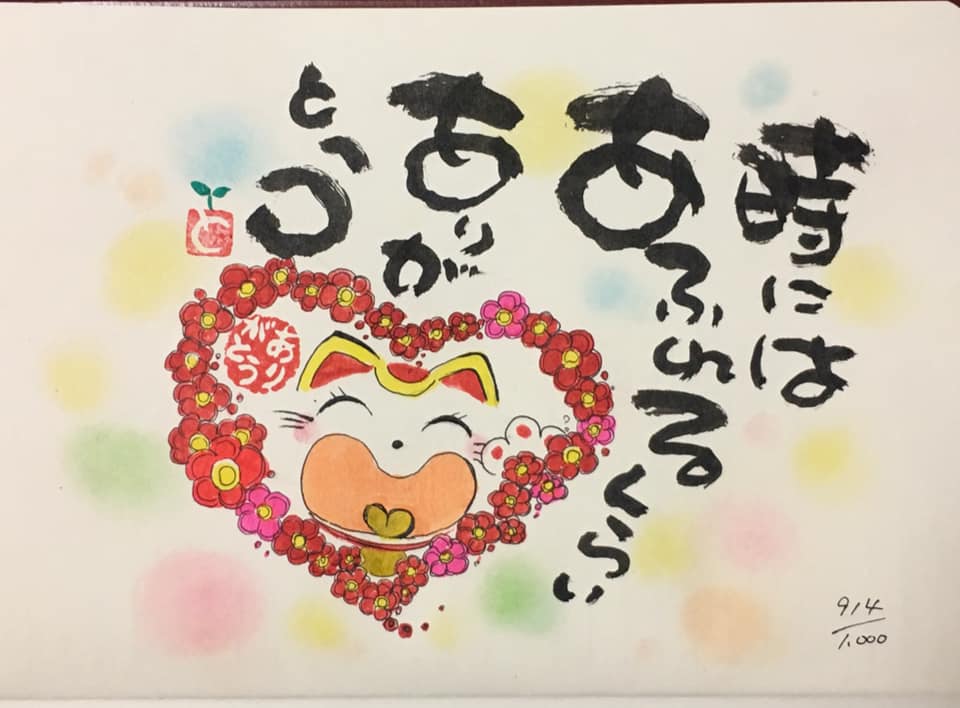 時には
あふれる
くらい
ありが
とう
と
ありがとう
914
1,000